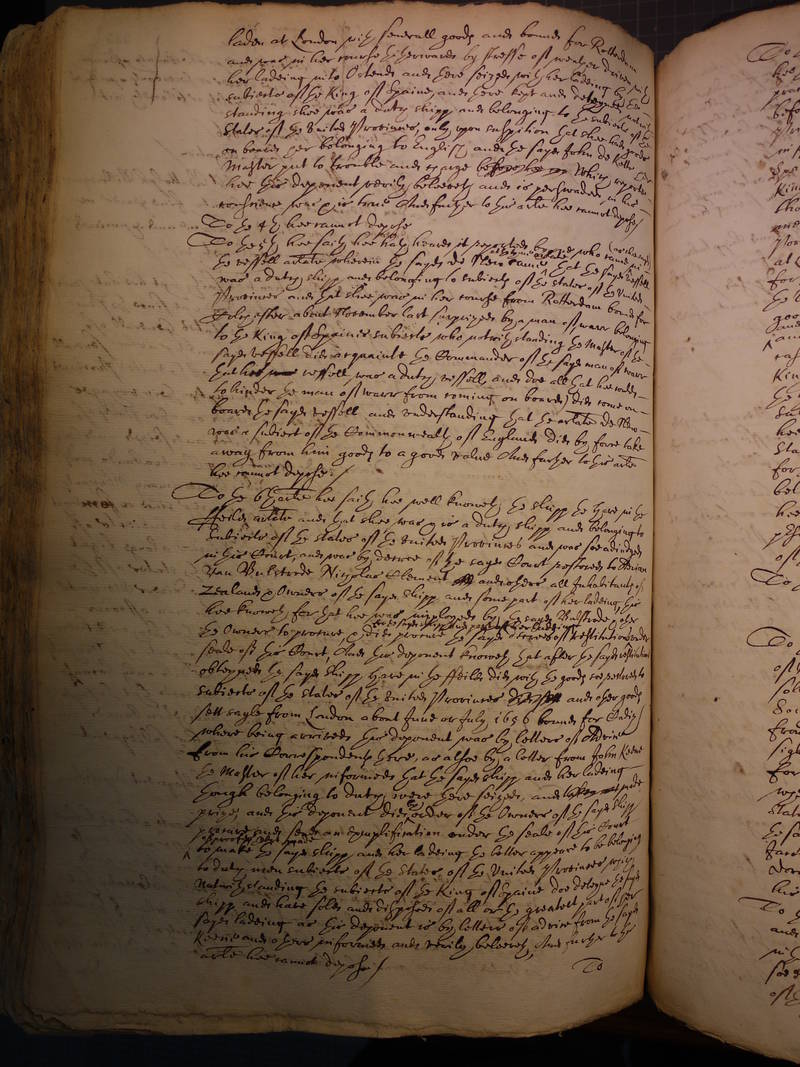 laden at London with severall goods and bound for Rotterdam
and was in her course thitherwards by stresse of weather driven with
her ladeing into Ostend and there seized with her ladeing by the
subiects of the King of Spaine, and there kept and deteyned notwith
standing shee was a dutch shipp and belonging to the subiects of the
States of the United Provinces, only upon suspition that shee had goods
on board her belonging to English, and the sayd John de
Master put to trouble and charge
hee this deponent verily beleeveth and is perswaded in his
conscience was & is true And further to this arte hee cannot depose
To the 4th hee cannot depose
To the 5th hee saith hee hath heard it reported by one who came in
the vessell arlate wherein the sayd de was that the sayd vessell
was a dutch shipp and belonging to subiects of the States of the United
Provinces and that shee was in her course from Rotterdam bound for
about November last surprized by a man of warr belonging
to the King of Spaines subiects who notwithstanding the Master of the
sayd vessell did acquainte the Commander of the sayd man of warr
that vessell was a dutch vessell, and doe all that hee could
to hinder the man of warr from coming on board, did come on
board the sayd vessell and understanding that the arlate de
was a subiect of the Commonwealth of England did by force take
away from him goods to a good value And further to this arte
hee cannot depose /
To the 6th arte hee saith hee well knoweth the shipp the Hare in the
ffeild arlate and that shee was & is a dutch shipp and belonging to
subiects of the States of the United Provinces and was soe adiudged
in this Court, and was by decree of the sayd Court restored to Adrian
Van Bulstrode Nicholas Clement and others all Inhabitants of
Zealand & Owners of the sayd shipp and some part of her ladeing, this
hee knoweth for that hee was imployed by the sayd Bulstrode & other
the Owners to procure & did procure the sayd decree of Restitution under
seale of this Court, And this deponent knoweth that after the sayd restitution
obteyned the sayd shipp Hare in the ffeild did with the goods restored to
subiects of the States of the United Provinces and other goods
sett sayle from London about June or July 1656 bound for Cadiz
where being arrived this deponent was by letters of Advice
from his Correspondents there, as alsoe by a letter from John Keene
the Master of her informed that the sayd shipp and her ladeing
though belonging to dutch, were there seized, and made
prize, and this deponent did by order of the Owners of the sayd shipp
procure and send an exemplification under the seale of this Court
to make the sayd shipp and her ladeing the better appeare to be belonging
to dutch men subiects of the States of the United Provinces which
Notwithstanding the subiects of the King of Spaine doe deteyne the sayd
shipp and have sold and disposed of all or the greatest part of her
sayd ladeing as this deponent is by letters of advice from the sayd
Keene and others informed and verily beleeveth, And further to this
arte hee cannot depose /
To